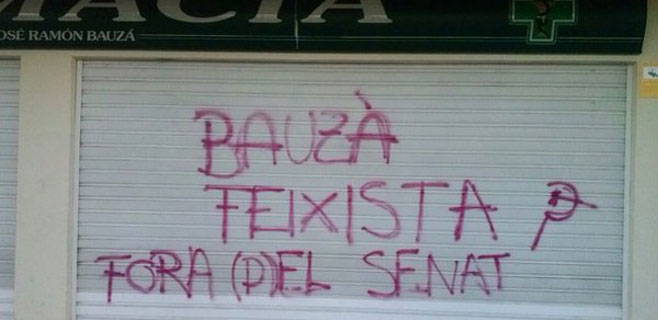 MACIA
JOSÉ RAMÓN BAUZÁ
BAUZÀ
FEIXISTA
FORA (D)EL SENAT